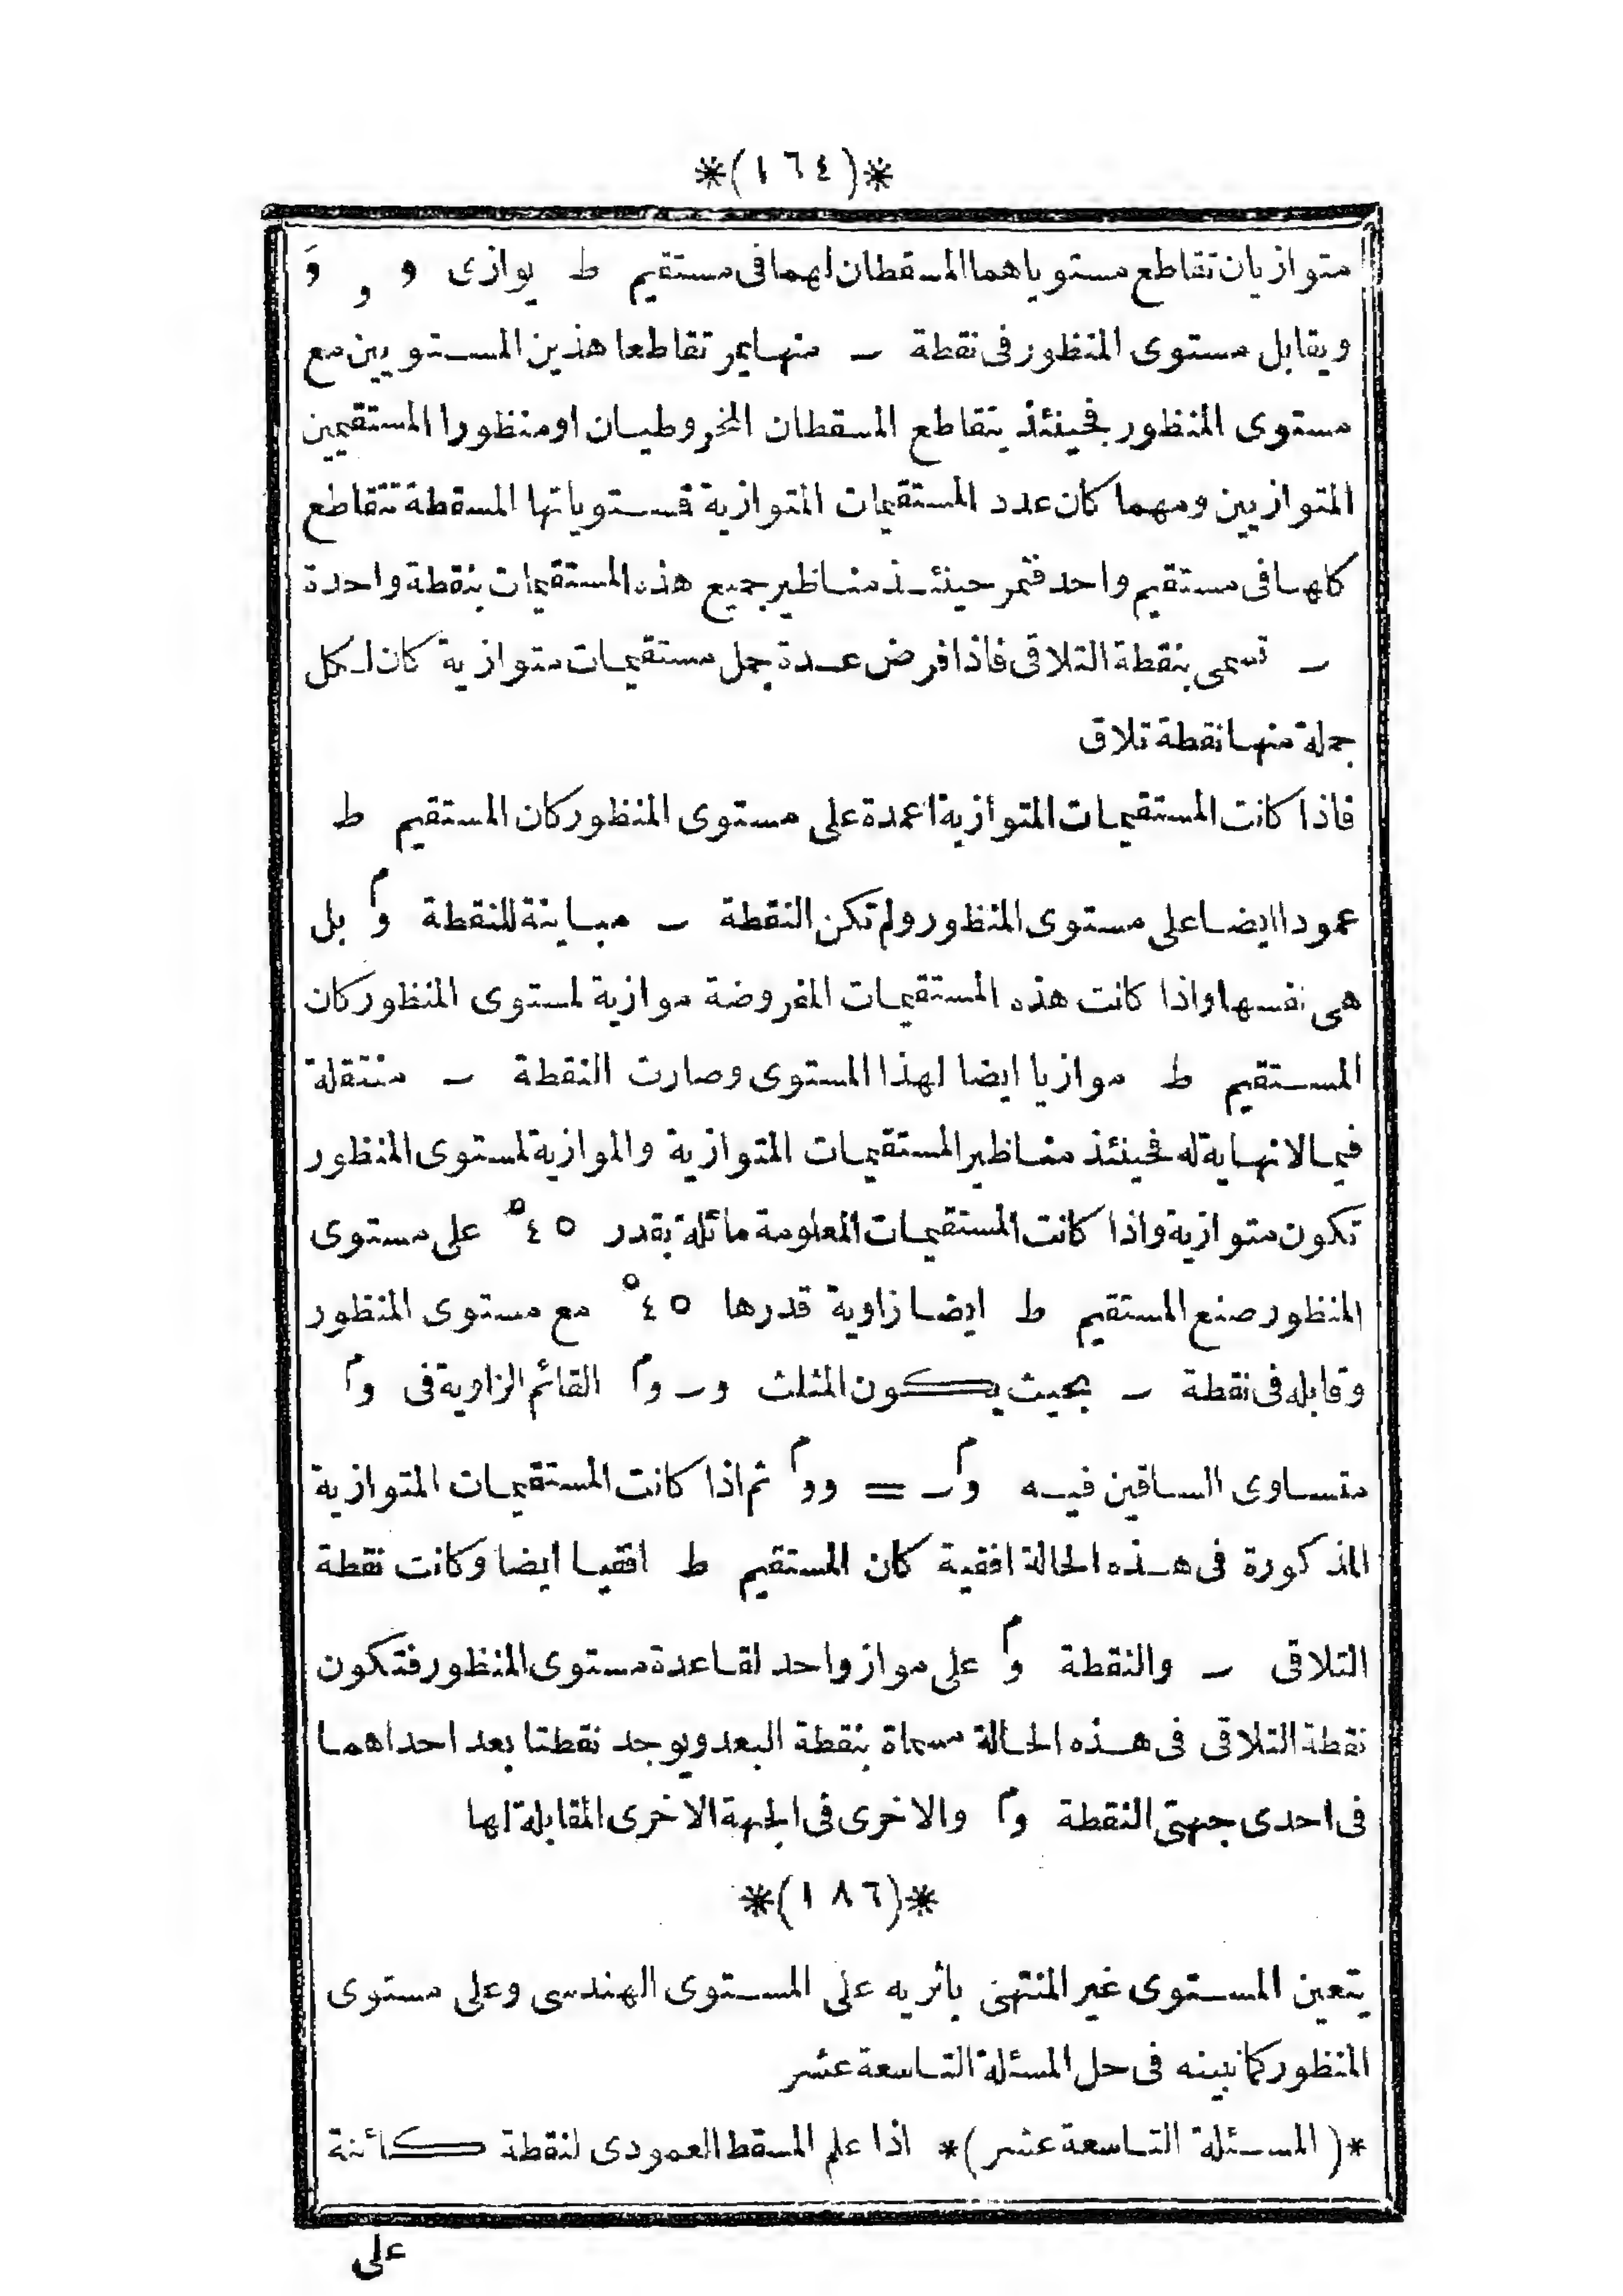 *(١٦٤)*
متوازيان تقاطع مستوياهما المسقطان لهما فى مستقيم ط يوازى و , وَ
ويقابل مستوى المنظور فى نقطة ر منها يمر تقاطعا هذين المستويين مع
مستوى المنظور فحينئذ يتقاطع المسقطان المخروطيان او منظورا المستقيمين
المتوازيين ومهما كان عدد المستقيمات المتوازية فمستوياتها المسقطة تتقاطع
كلها فى مستقيم واحد فتمر حينئذ مناظير جميع هذه المستقيمات بنقطة واحدة
ر تسمى بنقطة التلاقى فاذا فرض عدة جمل مستقيمات متوازية كان لكل
جملة منها نقطة تلاق
فاذا كانت المستقيمات المتوازية اعمدة على مستوى المنظور كان المستقيم ط
عمودا ايضا على مستوى المنظور ولم تكن النقطة ر مباينة للنقطة وَم بل
هى نفسها واذا كانت هذه المستقيمات المفروضة موازية لمستوى المنظور كان
المستقيم ط موازيا ايضا لهذا المستوى وصارت النقطة ر منتقلة
فيما لا نهاية له فحينئذ مناظير المستقيمات المتوازية والموازية لمستوى المنظور
تكون متوازية واذا كانت المستقيمات المعلومة مائلة بقدر ٤٥° على مستوى
المنظور صنع المستقيم ط ايضا زاوية قدرها ٤٥° مع مستوى المنظور
وقابله فى نقطة ر بحيث يكون المثلث و ر وم القائم الزاوية فى وم
متساوى الساقين فيه وَم ر = و وَم ثم اذا كانت المستقيمات المتوازية
المذكورة فى هذه الحالة افقية كان المستقيم ط افقيا ايضا وكانت نقطة
التلاقى ر والنقطة وَم على مواز واحد لقاعدة مستوى المنظور فتكون
نقطة التلاقى فى هذه الحالة مسماة بنقطة البعد ويوجد نقطتا بعد احداهما
فى احدى جهتى النقطة وم والاخرى فى الجهة الاخرى المقابلة لها
*(١٨٦)*
يتعين المستوى غير المنتهى باثريه على المستوى الهندسى وعلى مستوى
المنظور كما نبينه فى حل المسئلة التاسعة عشر
*(المسئلة التاسعة عشر)* اذا علم المسقط العمودى لنقطة كائنة
على